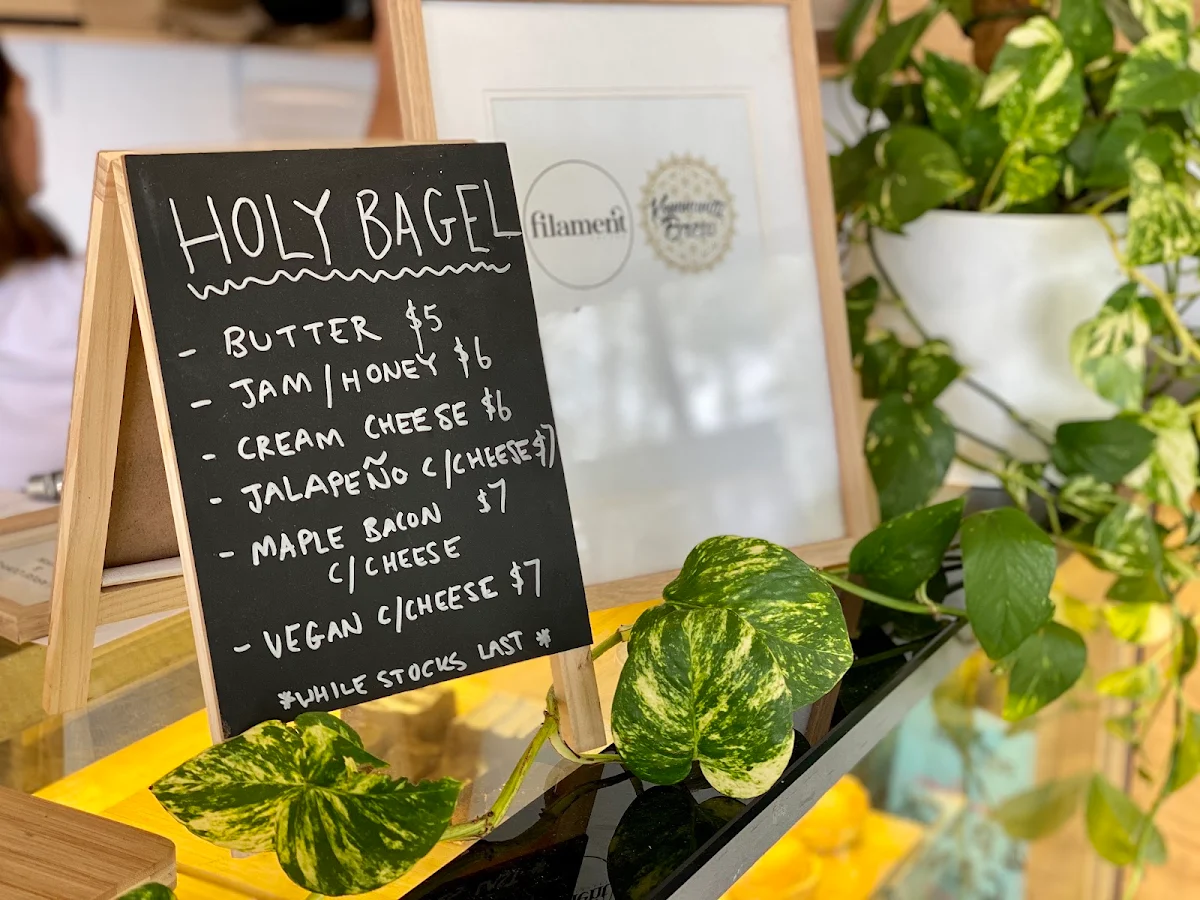 HOLY BAGEL
- BUTTER $5
- JAM/HONEY $6
- CREAM CHEESE $6
- JALAPEÑO C/CHEESE $7
- MAPLE BACON $7
C/CHEESE
- VEGAN C/CHEESE $7
*WHILE STOCKS LAST *
filament